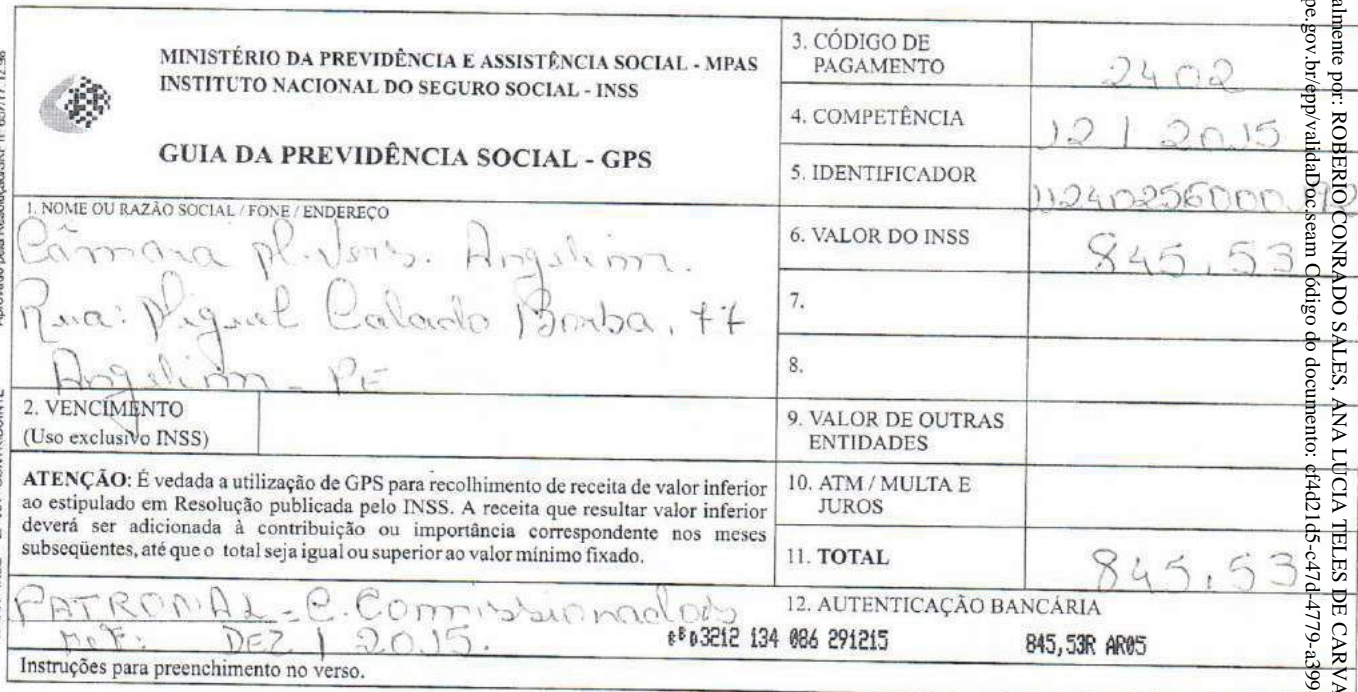 MINISTÉRIO DA PREVIDÊNCIA E ASSISTÊNCIA SOCIAL - MPAS
INSTITUTO NACIONAL DO SEGURO SOCIAL - INSS
GUIA DA PREVIDÊNCIA SOCIAL - GPS
3. CÓDIGO DE
PAGAMENTO
2402
4. COMPETÊNCIA
12 / 2015
5. IDENTIFICADOR
6. VALOR DO INSS
845,53
7.
8.
9. VALOR DE OUTRAS
ENTIDADES
10. ATM / MULTA E
JUROS
11. TOTAL
845,53
1. NOME OU RAZÃO SOCIAL / FONE / ENDEREÇO
Câmara Angelim.
Rua: Miguel Calado Borba, 77
Angelim - PE
2. VENCIMENTO
(Uso exclusivo INSS)
ATENÇÃO: É vedada a utilização de GPS para recolhimento de receita de valor inferior
ao estipulado em Resolução publicada pelo INSS. A receita que resultar valor inferior
deverá ser adicionada à contribuição ou importância correspondente nos meses
subseqüentes, até que o total seja igual ou superior ao valor mínimo fixado.
PATRONAL - C. Comissionados
Ref: DEZ / 2015.
12. AUTENTICAÇÃO BANCÁRIA
3212 134 086 291215 845,53R AR05
Instruções para preenchimento no verso.
almente por: ROBERIO CONRADO SALES, ANA LUCIA TELES DE CARVA
pe.gov.br/epp/validaDoc.seam Código do documento: cf4d21d5-c47d-4779-a399